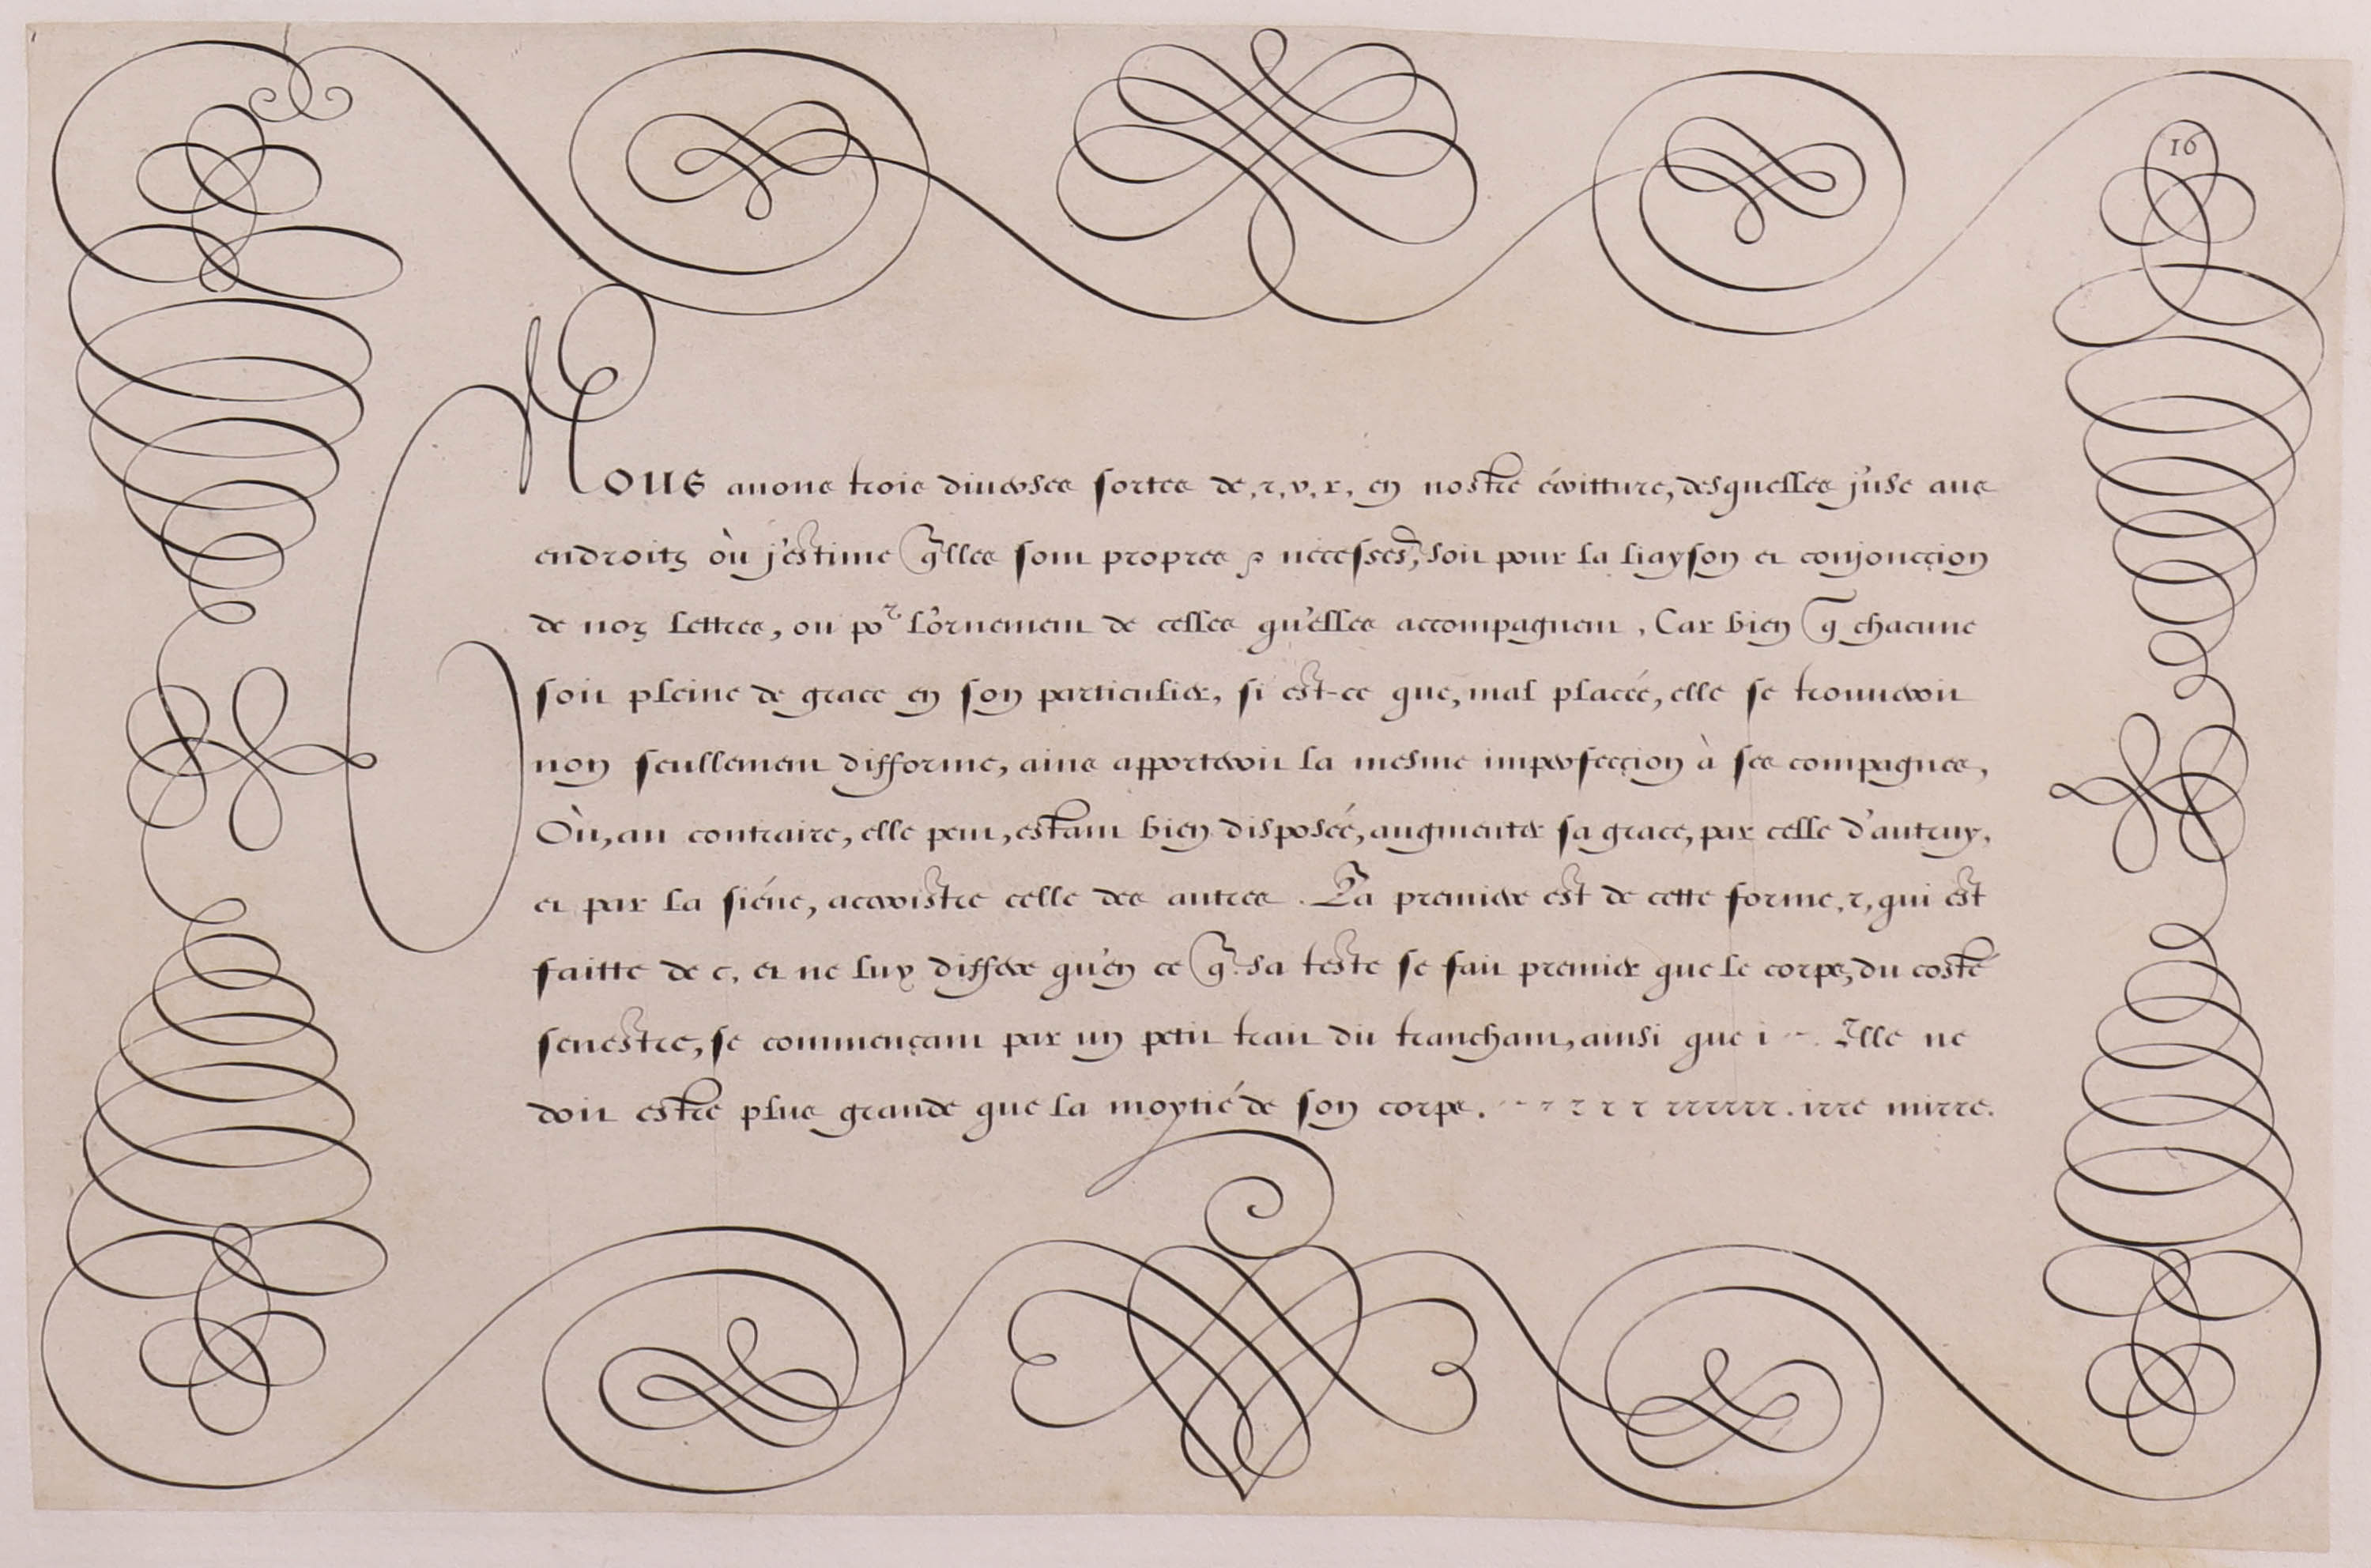 16
Nous auons trois diuerses sortes de, r, v, r, en nostre écritture, desquelles j'use aus
endroits où j'estime q̃lles sont propres & necess.es, soit pour la liayson et conjoncçion
de noz lettres, ou po.r l'ornement de celles qu'elles accompagnent, Car bien q̃ chacune
soit pleine de grace en son particulier, si est-ce que, mal placée, elle se trouueroit
non seullement difforme, ains apporteroit la mesme imperfecçion à ses compagnes,
Où, au contraire, elle peut, estant bien disposée, augmenter sa grace, par celle d'autruy,
et par la siéne, accroistre celle des autres. La premiere est de cette forme, r, qui est
faitte de c, et ne luy differe qu'en ce q̃ sa teste se fait premier que le corps, du costé
senestre, se commençant par un petit trait du tranchant, ainsi que i -. Elle ne
doit estre plus grande que la moytié de son corps. - - r r r r rrrrrr. irre mirre.